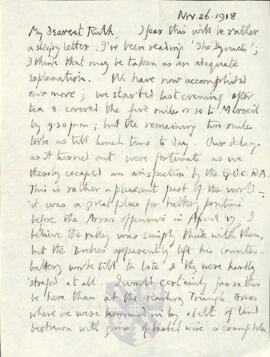 Nov. 26. 1918
My Dearest Ruth, I fear this will be rather
a sleepy letter. I've been reading 'The Dynasts';
I think that may be taken as an adequate
explanation. We have now accomplished
our move; we started last evening after
tea & covered the five miles or so to
by 9.30 p.m; but the remaining two miles
took us till lunch time to day. Our delay
as it turned out were fortunate as we
thereby escaped an inspection by the G.O.C.R.A.
This is rather a pleasant part of the world –
it was a great place for battery positions
before the Arras offensive in April 17. I
believe the valley was simply thick with them,
but the Boches apparently left his counter-
battery work till to late & they were hardly
strafed at all. I would certainly far rather
be here than at the Railway Triangle, Arras
where we were hemmed in by a belt of land
bestrewn with pieces of barbed wire &